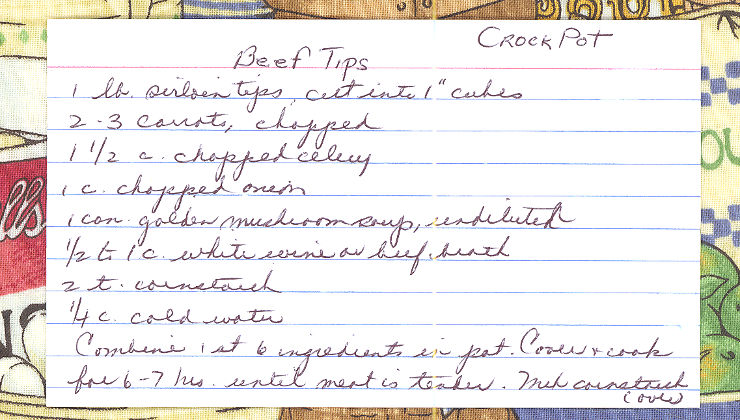 Crock Pot
Beef Tips
1 lb. sirloin tips, cut into 1" cubes
2-3 carrots, chopped
1 1/2 c. chopped celery
1 c. chopped onion
1 can golden mushroom soup, undiluted
1/2 to 1 c. white wine or beef broth
2 t. cornstarch
1/4 c. cold water
Combine 1st 6 ingredients in pot. Cover + cook
for 6-7 hrs. until meat is tender. Mix cornstarch
(over